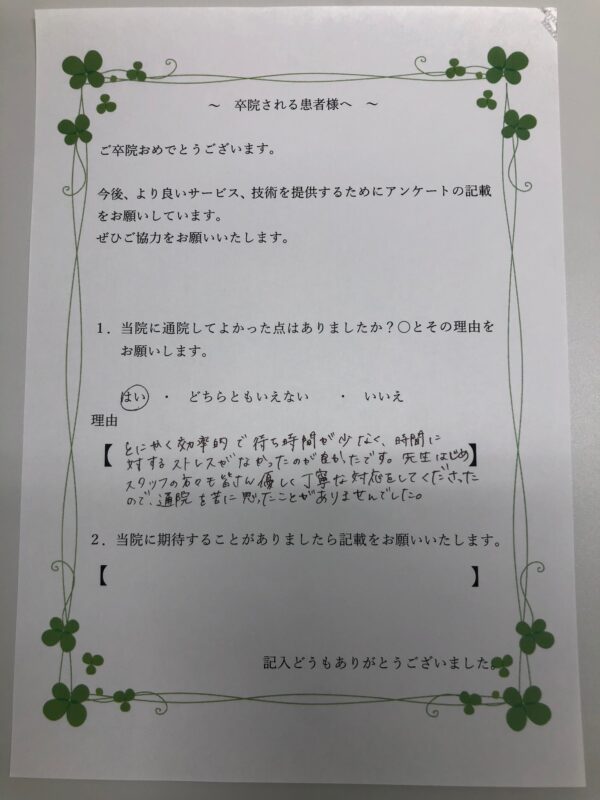 ～　卒院される患者様へ　～
ご卒院おめでとうございます。
今後、より良いサービス、技術を提供するためにアンケートの記載
をお願いしています。
ぜひご協力をお願いいたします。
１．当院に通院してよかった点はありましたか？〇とその理由を
お願いします。
はい　・　どちらともいえない　・　いいえ
理由
【とにかく効率的で待ち時間が少なく、時間に
対するストレスがなかったのが良かったです。先生はじめ】
スタッフの方々も皆さん優しく丁寧な対応をしてくださった
ので、通院を苦に思ったことがありませんでした。
２．当院に期待することがありましたら記載をお願いいたします。
【　】
記入どうもありがとうございました。